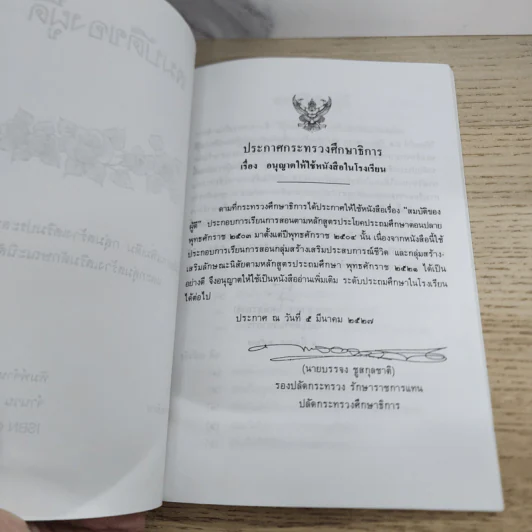 สมบัติของผู้ดี
ประกาศกระทรวงศึกษาธิการ
เรื่อง อนุญาตให้ใช้หนังสือในโรงเรียน
ตามที่กระทรวงศึกษาธิการได้ประกาศให้ใช้หนังสือเรื่อง "สมบัติของ
ผู้ดี" ประกอบการเรียนการสอนตามหลักสูตรประโยคประถมศึกษาตอนปลาย
พุทธศักราช ๒๕๐๓ มาตั้งแต่ปีพุทธศักราช ๒๕๐๔ นั้น เนื่องจากหนังสือนี้ใช้
ประกอบการเรียนการสอนกลุ่มสร้างเสริมประสบการณ์ชีวิต และกลุ่มสร้าง-
เสริมลักษณะนิสัยตามหลักสูตรประถมศึกษา พุทธศักราช ๒๕๒๑ ได้เป็น
อย่างดี จึงอนุญาตให้ใช้เป็นหนังสืออ่านเพิ่มเติม ระดับประถมศึกษาในโรงเรียน
ได้ต่อไป
ประกาศ ณ วันที่ ๕ มีนาคม ๒๕๒๗
(นายบรรจง ชูสกุลชาติ)
รองปลัดกระทรวง รักษาราชการแทน
ปลัดกระทรวงศึกษาธิการ